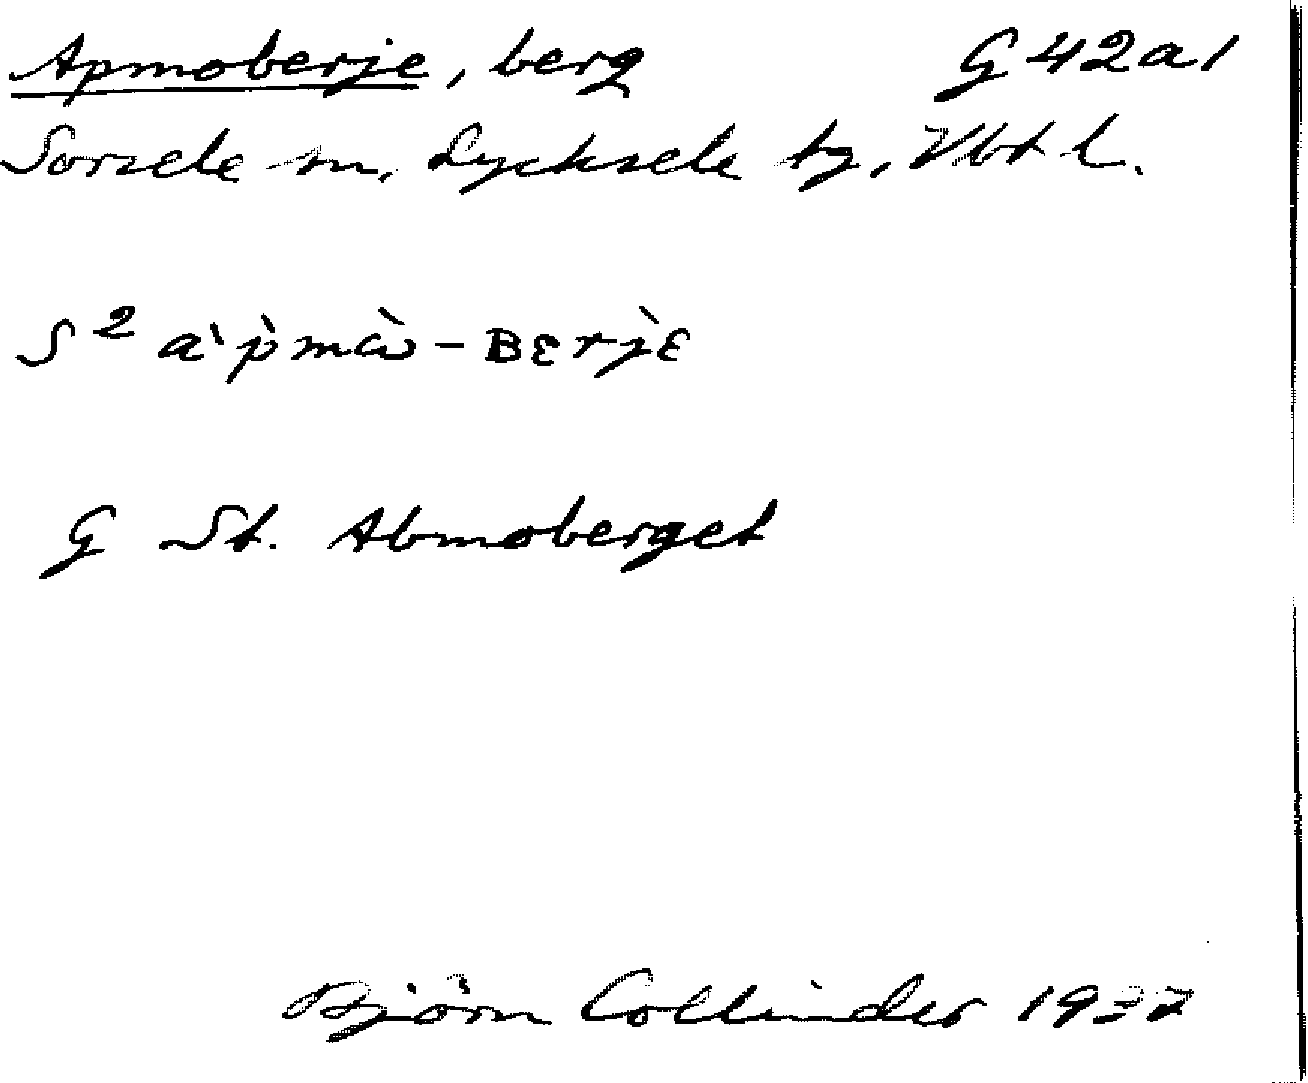 Apmoberje, berg G 42 a 1
Sorsele sn, Lycksele tg, Vbt l.
S² a'ṗmɑ̀ω-BƐrjƐ
G St. Abmoberget
Björn Collinder 1937